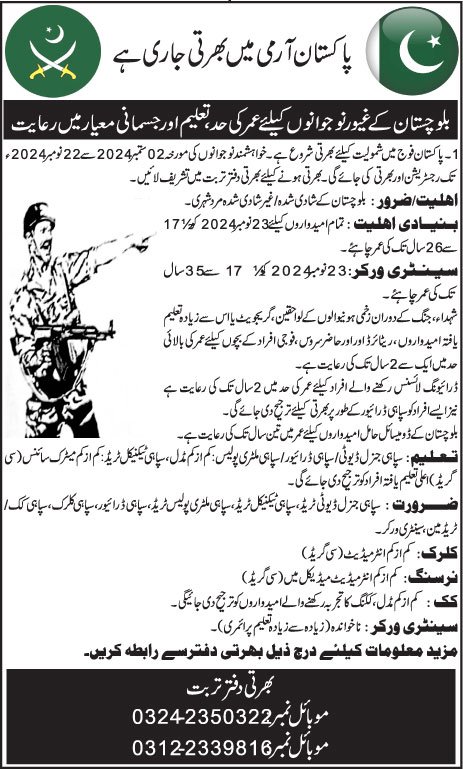 پاکستان آرمی میں بھرتی جاری ہے
بلوچستان کے غیور نوجوانوں کیلئے عمر کی حد، تعلیم اور جسمانی معیار میں رعایت
1۔ پاکستان فوج میں شمولیت کیلئے بھرتی شروع ہے۔ خواہشمند نوجوانوں کی مورخہ 02 ستمبر 2024 سے 22 نومبر 2024ء
تک رجسٹریشن اور بھرتی کی جائے گی۔ بھرتی ہونے کیلئے بھرتی دفتر تربت میں تشریف لائیں۔
اھلیت/ضرور: بلوچستان کے شادی شدہ/غیر شادی شدہ مرد شہری۔
بنیادی اھلیت: تمام امیدواروں کیلئے 23 نومبر 2024 کو ½ 17
سے 26 سال تک کی عمر چاہئے۔
سینٹری ورکر: 23 نومبر 2024 کو ½ 17 سے 35 سال
تک کی عمر چاہئے۔
شہداء، جنگ کے دوران زخمی ہونیوالوں کے لواحقین، گریجویٹ یا اس سے زیادہ تعلیم
یافتہ امیدواروں، ریٹائرڈ اور حاضر سروس، فوجی افراد کے بچوں کیلئے عمر کی بالائی
حد میں ایک سے 2 سال تک کی رعایت ہے۔
ڈرائیونگ لائسنس رکھنے والے افراد کیلئے عمر کی حد میں 2 سال تک کی رعایت ہے
نیز ایسے افراد کو سپاہی ڈرائیور کے طور پر بھرتی کیلئے ترجیح دی جائے گی۔
بلوچستان کے ڈومیسائل حامل امیدواروں کیلئے عمر میں تین سال تک کی رعایت ہے۔
تعلیم: سپاہی جنرل ڈیوٹی/سپاہی ڈرائیور/سپاہی ملٹری پولیس: کم از کم مڈل، سپاہی ٹیکنیکل ٹریڈ: کم از کم میٹرک سائنس (سی
گریڈ) اعلیٰ تعلیم یافتہ افراد کو ترجیح دی جائے گی۔
ضرورت: سپاہی جنرل ڈیوٹی ٹریڈ، سپاہی ٹیکنیکل ٹریڈ، سپاہی ملٹری پولیس ٹریڈ، سپاہی ڈرائیور، سپاہی کلرک، سپاہی کک/
ٹریڈمین، سینٹری ورکر۔
کلرک: کم از کم انٹرمیڈیٹ (سی گریڈ)
نرسنگ: کم از کم انٹرمیڈیٹ میڈیکل میں (سی گریڈ)
کک: کم از کم مڈل، ککنگ کا تجربہ رکھنے والے امیدواروں کو ترجیح دی جائیگی۔
سینٹری ورکر: ناخواندہ (زیادہ سے زیادہ تعلیم پرائمری)۔
مزید معلومات کیلئے درج ذیل بھرتی دفتر سے رابطہ کریں۔
بھرتی دفتر تربت
موبائل نمبر 0324-2350322
موبائل نمبر 0312-2339816